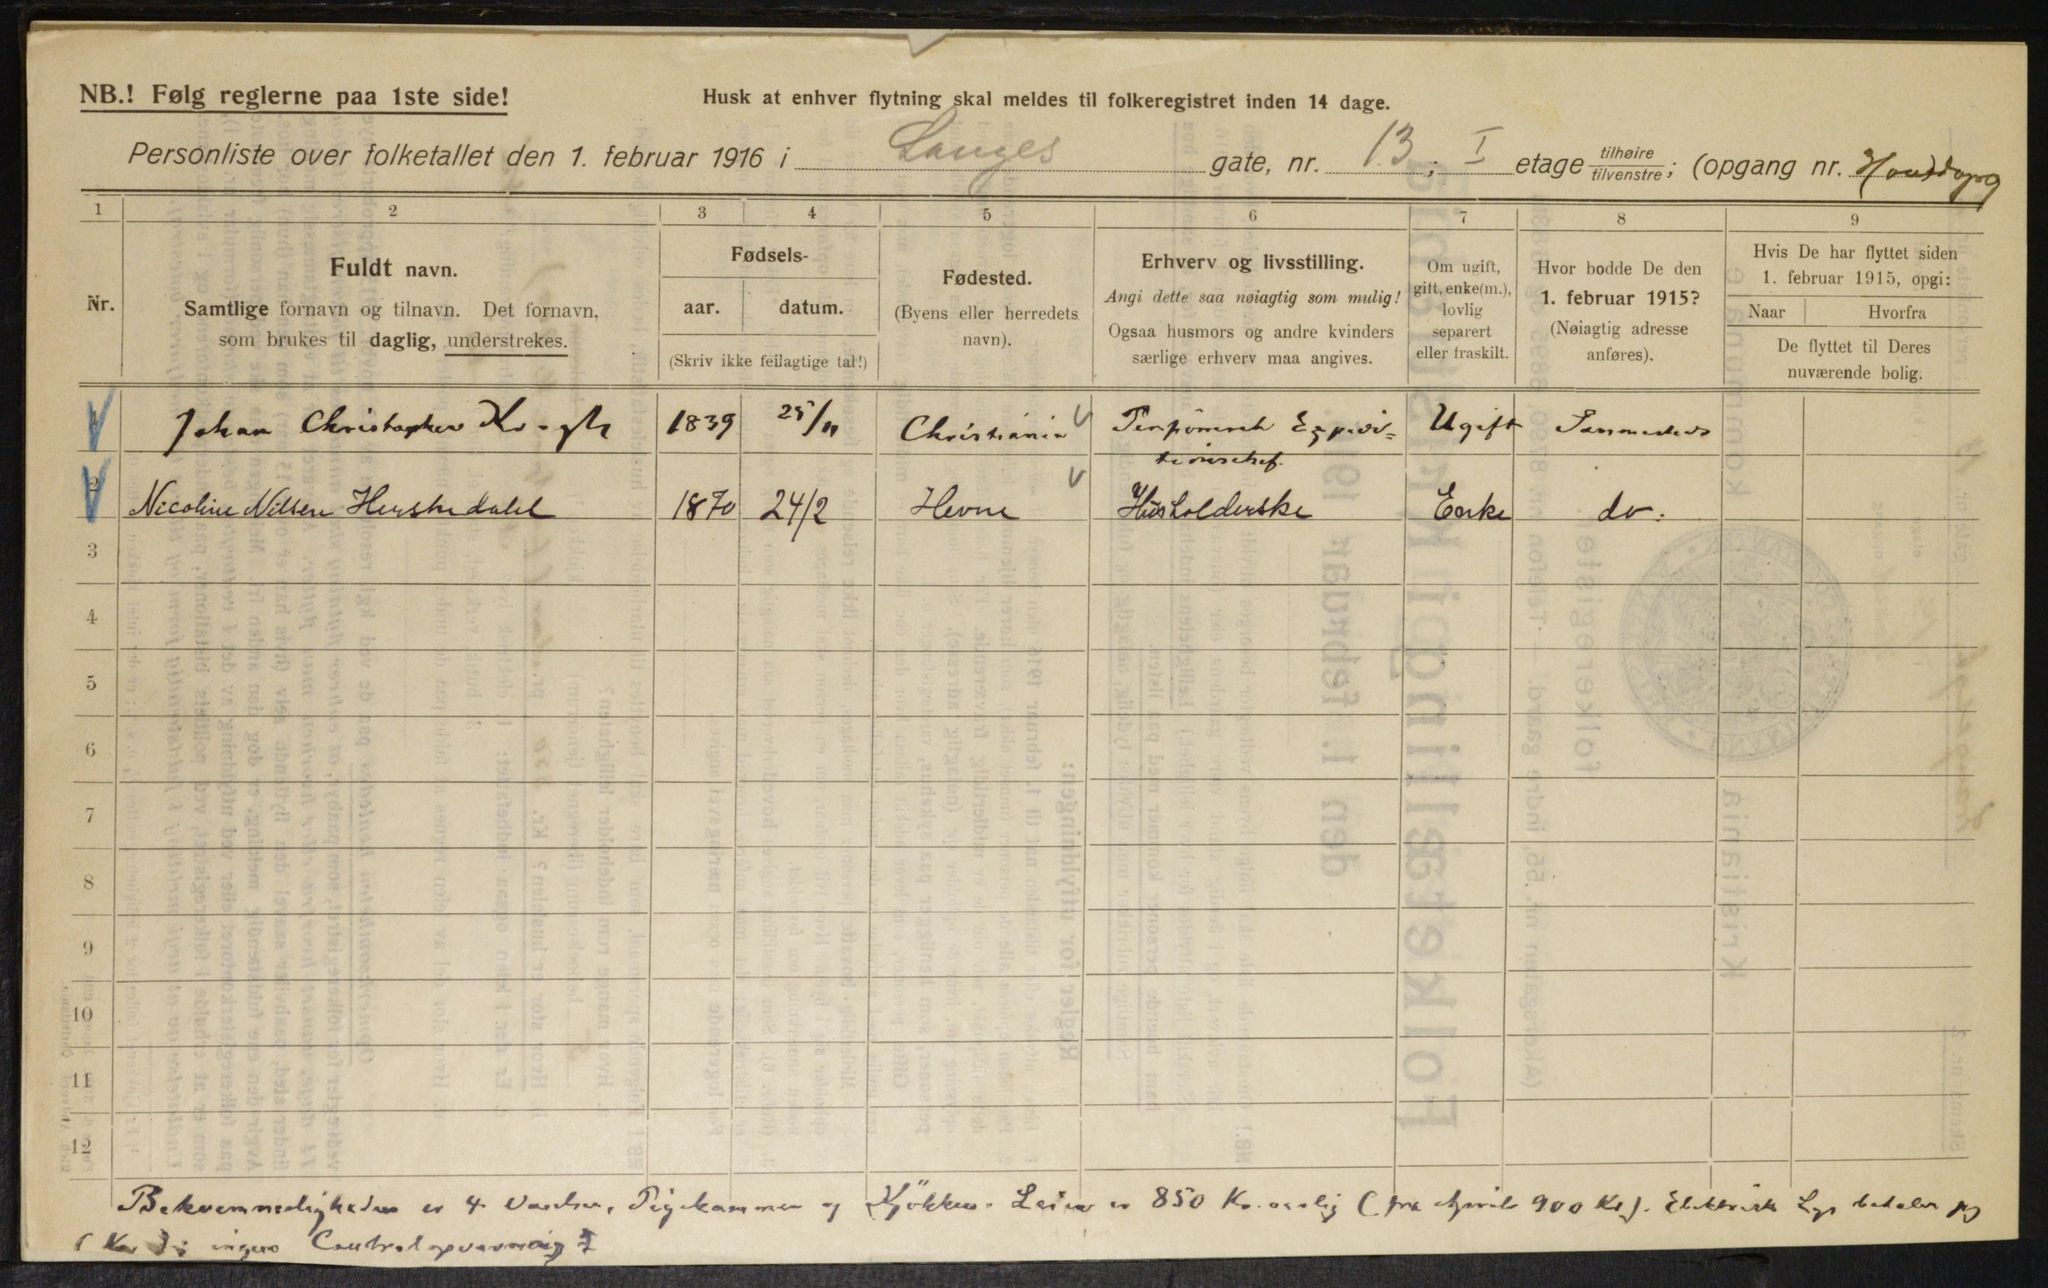 NB.! Følg reglerne paa 1ste side!
Husk at enhver flytning skal meldes til folkeregistret inden 14 dage.
Personliste over folketallet den 1. februar 1916 i Langes gate, nr. 13 ; I etage tilhøire tilvenstre ; (opgang nr.
1 2 3 4 5 6 7 8 9
Nr.
Fuldt navn.
Samtlige fornavn og tilnavn. Det fornavn,
som brukes til daglig, understrekes.
Fødsels-
aar. datum.
(Skriv ikke feilagtige tal!)
Fødested.
(Byens eller herredets
navn).
Erhverv og livsstilling.
Angi dette saa nøiagtig som mulig!
Ogsaa husmors og andre kvinders
særlige erhverv maa angives.
Om ugift,
gift, enke(m.),
lovlig
separert
eller fraskilt.
Hvor bodde De den
1. februar 1915?
(Nøiagtig adresse
anføres).
Hvis De har flyttet siden
1. februar 1915, opgi:
Naar Hvorfra
De flyttet til Deres
nuværende bolig.
1 Johan Christopher Krogh 1839 25/11 Christiania Pensioneret Expedi-
tionschef. Ugift Sammesteds
2 Nicoline Nilsen 1870 24/2 Hevne Husholderske Enke do.
3
4
5
6
7
8
9
10
11
12
Bekvemmeligheden er 4 Værelser, Pigekammer og Kjökken. Leien er 850 Kr. aarlig (fra April 900 Kr). Elektrisk Lys betaler jeg
ingen Centralopvarming